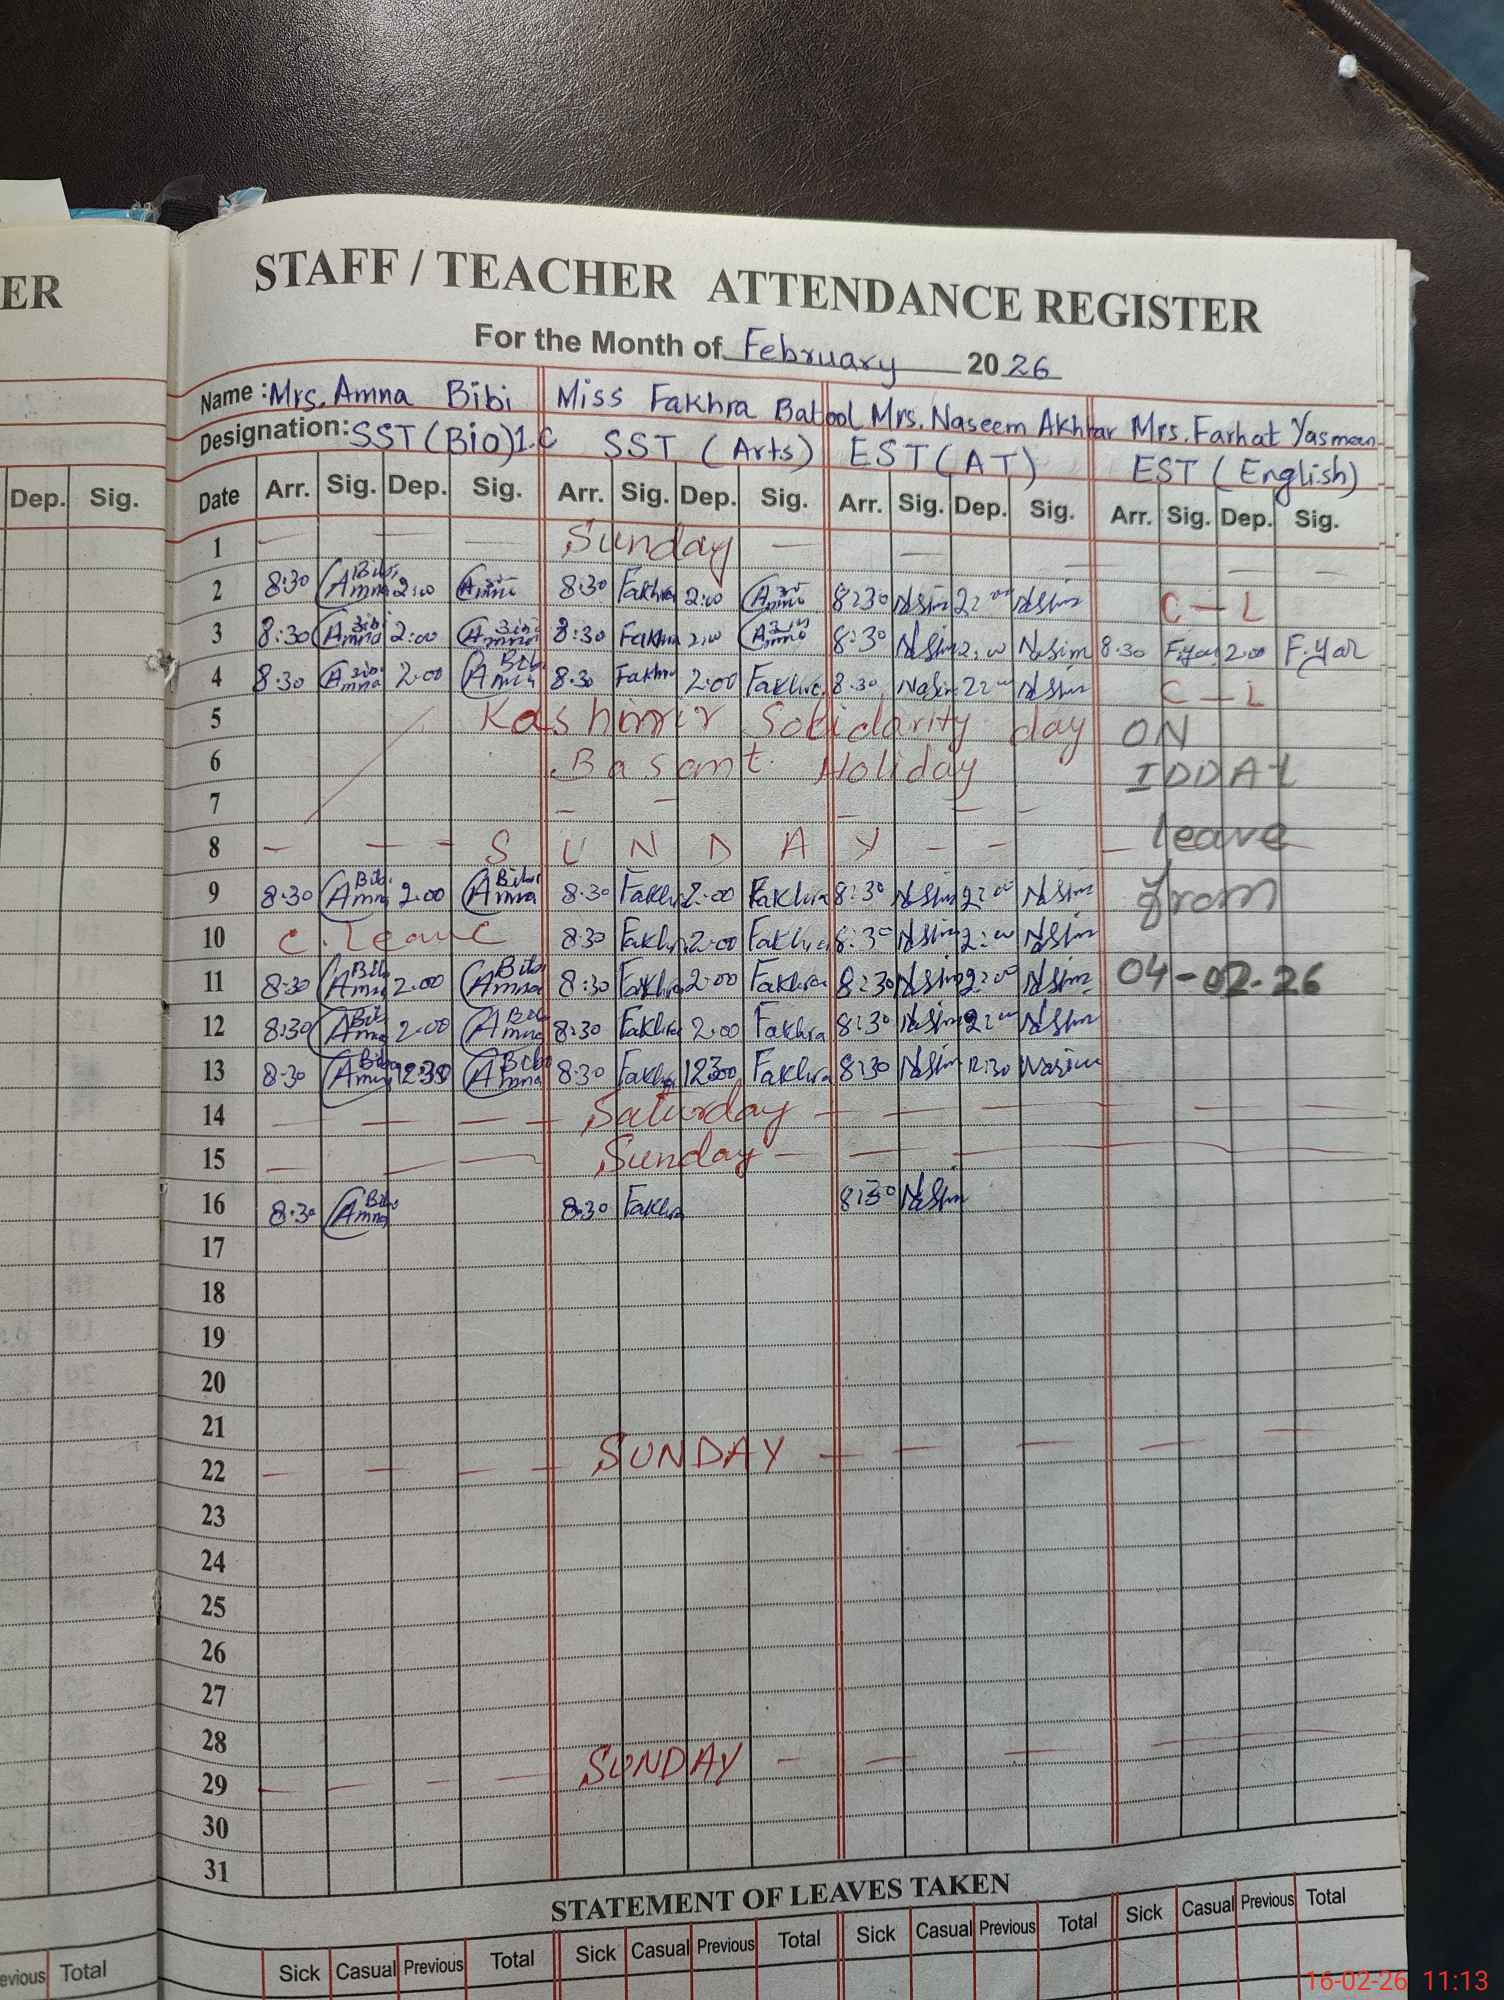 ER
STAFF / TEACHER ATTENDANCE REGISTER
For the Month of February 2026
Name : Mrs. Amna Bibi Miss Fakhra Batool Mrs. Naseem Akhtar Mrs. Farhat Yasmeen
Designation: SST (Bio) I.C SST (Arts) EST (AT) EST (English)
Dep. Sig. Date Arr. Sig. Dep. Sig. Arr. Sig. Dep. Sig. Arr. Sig. Dep. Sig. Arr. Sig. Dep. Sig.
1 Sunday
2 8:30 Amna Bibi 2:00 Amna 8:30 Fakhra 2:00 Amna 8:30 Nasim 2:00 Nasim C - L
3 8:30 Amna Bibi 2:00 Amna Bibi 8:30 Fakhra 2:00 Amna 8:30 Nasim 2:00 Nasim 8:30 F.yas 2:00 F.yas
4 8:30 Amna Bibi 2:00 Amna Bibi 8:30 Fakhra 2:00 Fakhra 8:30 Nasim 2:00 Nasim C - L
5 Kashmir Solidarity day ON
6 Basant Holiday IDDAT
7
8 S U N D A Y leave
9 8:30 Amna Bibi 2:00 Amna Bibi 8:30 Fakhra 2:00 Fakhra 8:30 Nasim 2:00 Nasim from
10 C. Leave 8:30 Fakhra 2:00 Fakhra 8:30 Nasim 2:00 Nasim
11 8:30 Amna Bibi 2:00 Amna Bibi 8:30 Fakhra 2:00 Fakhra 8:30 Nasim 2:00 Nasim 04-02-26
12 8:30 Amna Bibi 2:00 Amna Bibi 8:30 Fakhra 2:00 Fakhra 8:30 Nasim 2:00 Nasim
13 8:30 Amna Bibi 12:30 Amna Bibi 8:30 Fakhra 12:30 Fakhra 8:30 Nasim 12:30 Nasim
14 Saturday
15 Sunday
16 8:30 Amna Bibi 8:30 Fakhra 8:30 Nasim
17
18
19
20
21
22 SUNDAY
23
24
25
26
27
28
29 SUNDAY
30
31
STATEMENT OF LEAVES TAKEN
Total Sick Casual Previous Total Sick Casual Previous Total Sick Casual Previous Total Sick Casual Previous Total
16-02-26 11:13